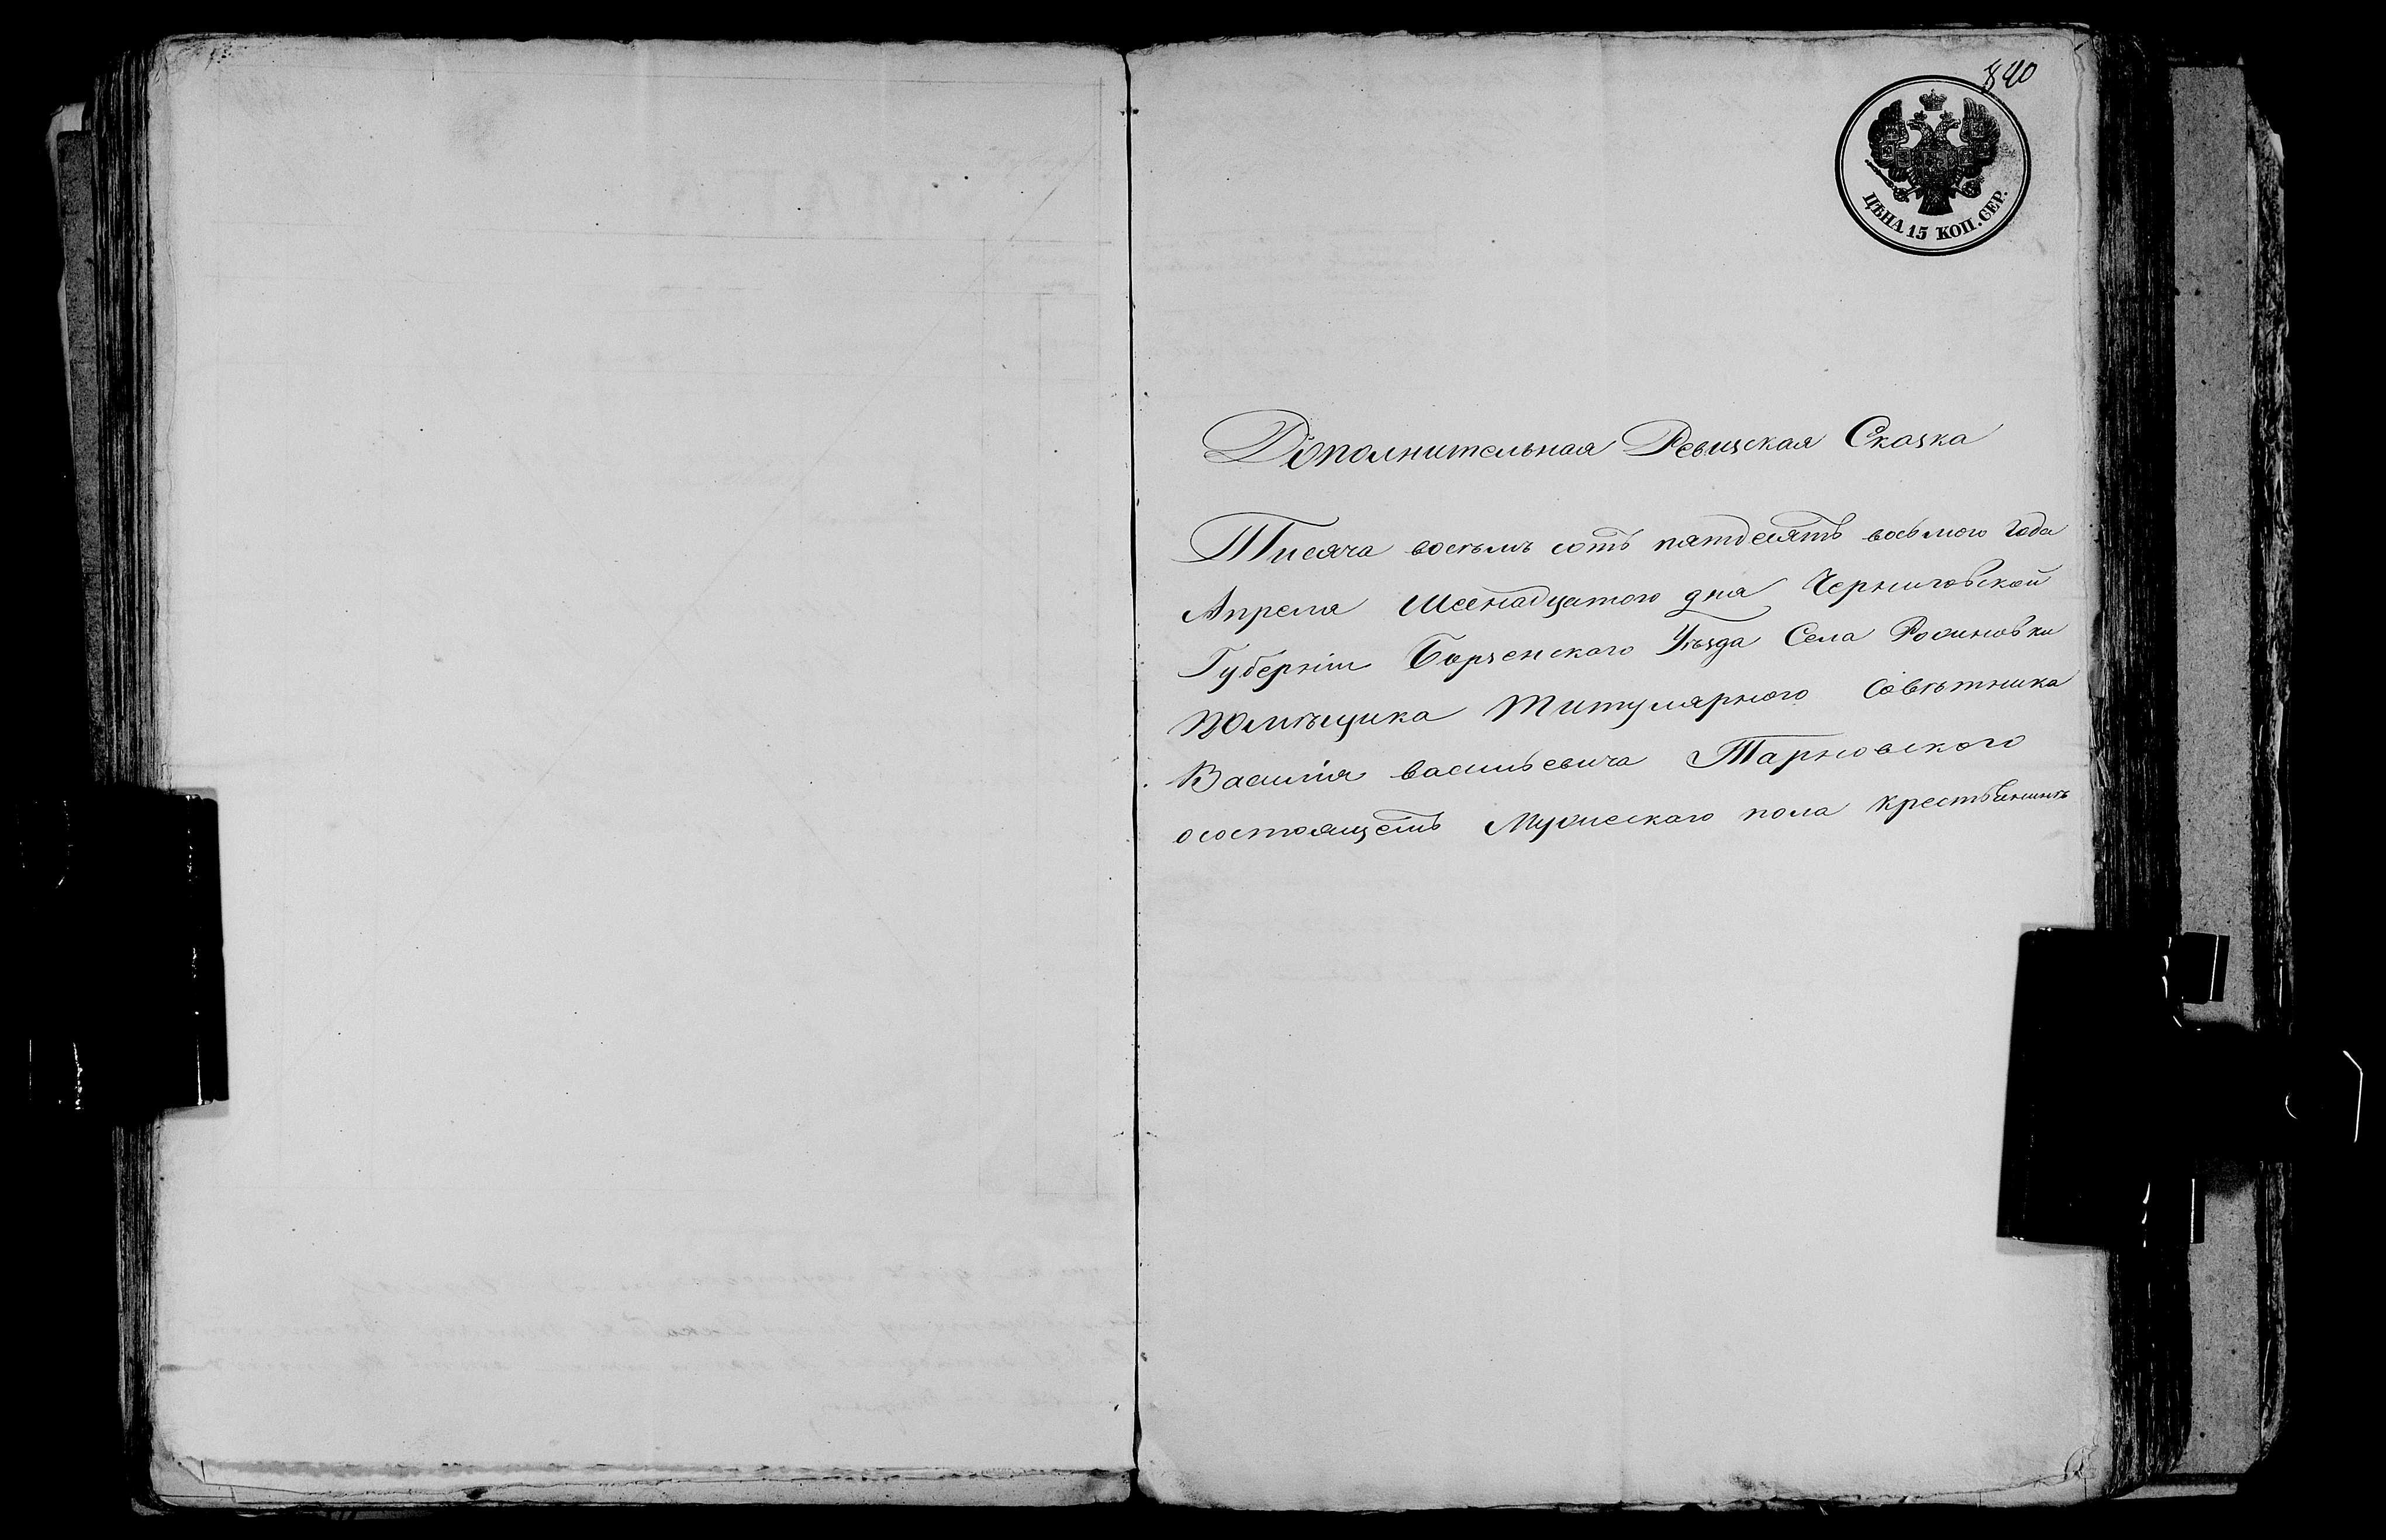 840
ЦѢНА 15 КОП. СЕР.
Дополнительная Ревизская Сказка
Тисяча восѣмь сотъ пятдесятъ восьмого года
Апреля Шеснадцатого дня Черниговской
Губерніи Борзенского Уѣзда Села
Помѣщика Титулярного Совѣтника
Василія васильевича Тарновского
осостоящемъ Мужескаго пола крестьянинѣ